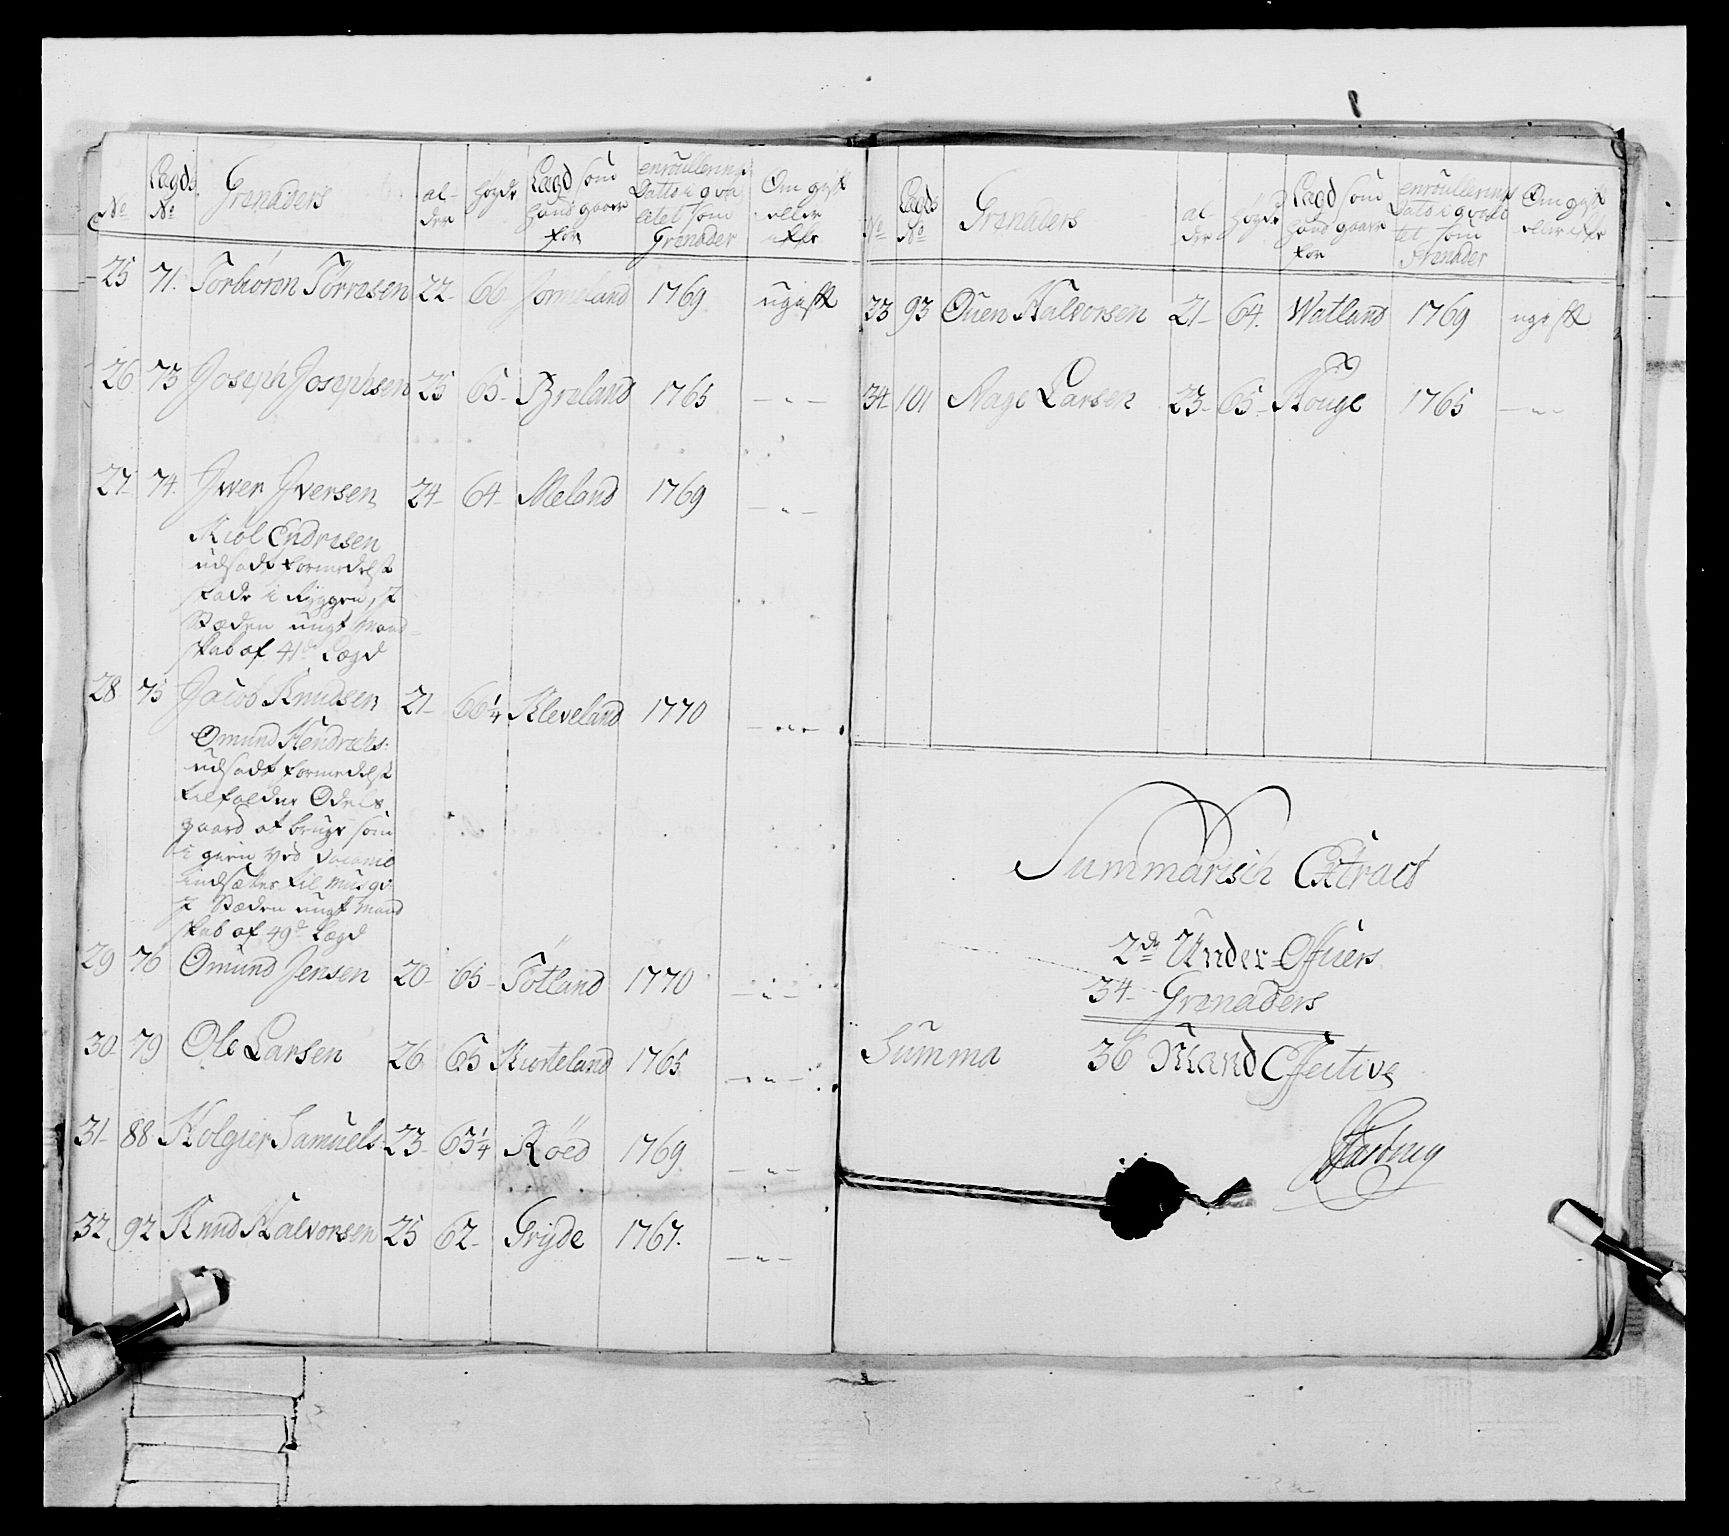 No Lagds No Grenaders al-der Høyde Lagd som hand gaaer for enroullerings Datto i qvalitet som Grenader Om gift eller ikke
25 71. Torbiøren Tørresen 22- 66 1769 ugift
26 73 Joseph Josephsen 25 65- Breland 1765 —"—
27- 74. Iver Iversen 24- 64- Meland 1769 —"—
Kiøl Endresen
udsadt formedelst
skade i Ryggen, I
Stæden ungt Mand-
skab af 41de Lægd
28 75 Jacob Knudsen 21- 66¼ Kleveland 1770 —"—
Omund Hendrichs:
udsadt formedelst
tilfalden Odels
gaard at bruge som
i gien ved Vacance
indsættes til Musqv:
I Stæden ungt Mand
skab af 49de Lægd
29 76 Omund Jensen 20- 65- Totland 1770 —"—
30- 79 Ole Larsen 26 65 Kiorteland 1765 —"—
31- 88 Holgier Samuels- 23- 65¼ Røed 1769 —"—
32 92 Knud Halvorsen 25 62- Gryde 1767. —"—
No Lagds No Grenaders al-der Høyde Lagd som hand gaaer for enroullerings Dato i qvalitet som Grenader Om gift eller ikke
33 93 Ouen Halvorsen 21- 64. Watland 1769 ugift
34 101 Aage Larsen 23- 65- Houge 1765 —"—
Summarisch Extract
2de Under-Officers
34- Grenaders
Summa 36 Mand Effective